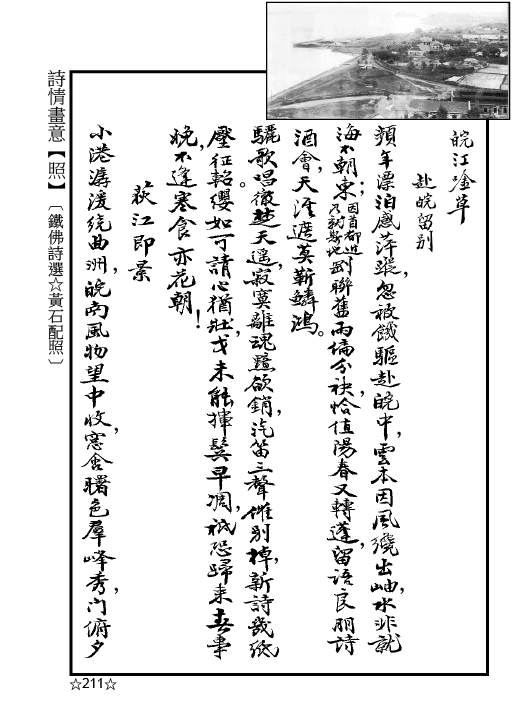 皖江唫草
赴皖留别
頻年漂泊感萍蹤，忽被饑驅赴皖中，雲本因風飛出岫，水非就
海不朝東；因首都近乃對勢地剛聯舊雨偏分袂，恰值陽春又轉蓬，留語良朋詩
酒會，天涯遮莫靳鱗鴻。
驪歌唱徹楚天遥，寂寞離魂黯欲銷，汽笛三聲催别棹，新詩幾紙
壓征軺。纓如可請心猶壯，戈未能揮鬓早凋，祇恐歸来春事
晚，不逢寒食亦花朝！
荻江即景
小港潺湲繞曲洲，皖南風物望中收，窓含曙色羣峰秀，门俯夕
詩情畫意【照】〔鐵佛詩選☆黃石配照〕
☆211☆